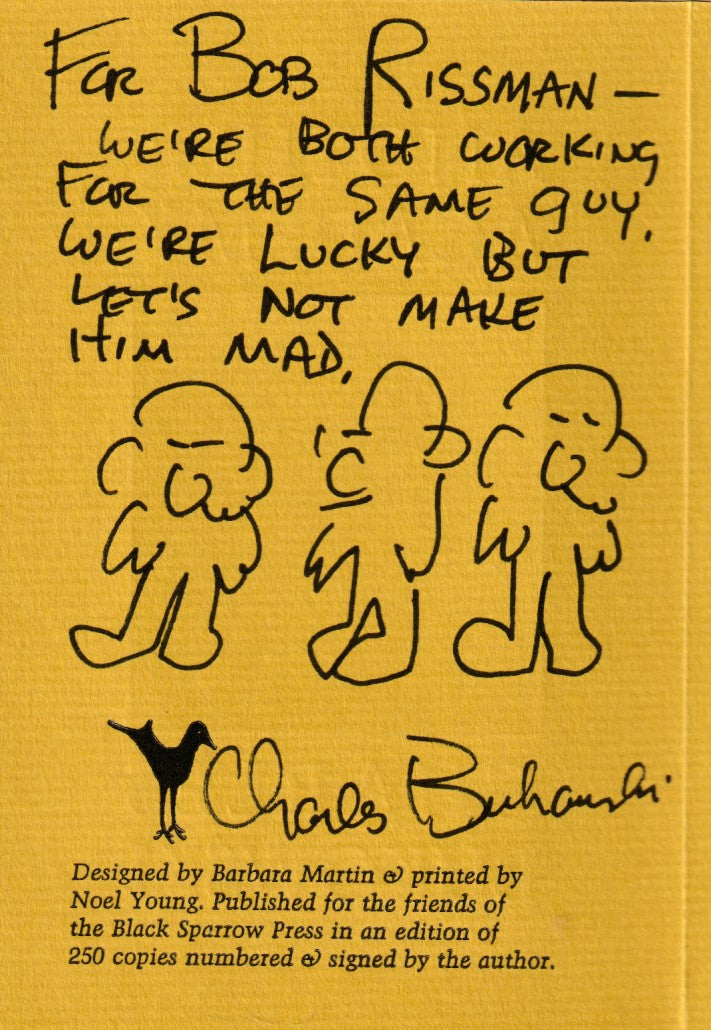 FOR BOB RISSMAN —
WE'RE BOTH WORKING
FOR THE SAME GUY.
WE'RE LUCKY BUT
LET'S NOT MAKE
HIM MAD.
Charles Bukowski
Designed by Barbara Martin & printed by
Noel Young. Published for the friends of
the Black Sparrow Press in an edition of
250 copies numbered & signed by the author.